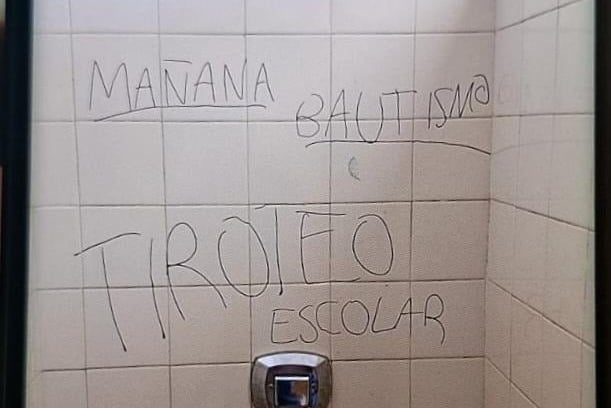 MAÑANA
BAUTISMO
TIROTEO
ESCOLAR